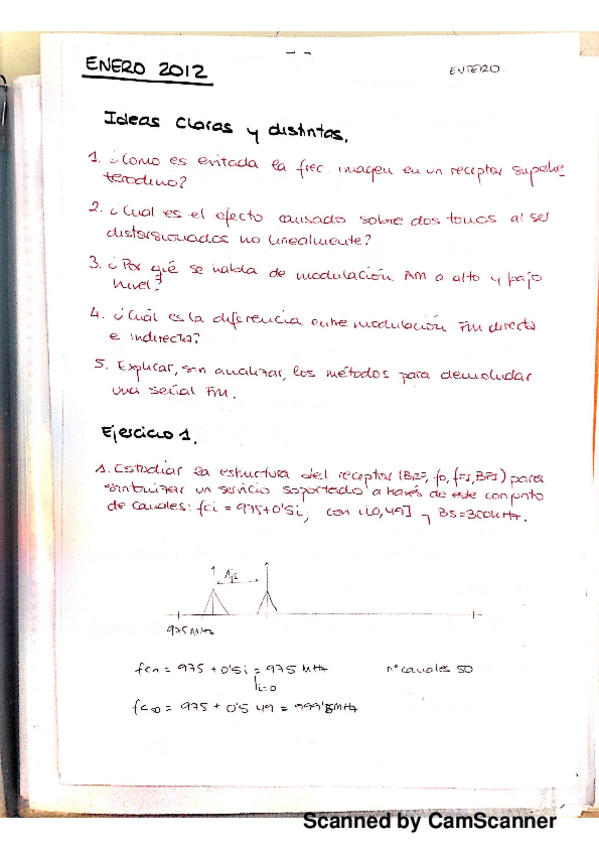 ENERO 2012
ENTERO
Ideas Claras y distintas.
1. ¿Como es evitada la frec. imagen en un receptor superhe
terodino?
2. ¿Cual es el efecto causado sobre dos tonos al ser
distorsionados no linealmente?
3. ¿Por qué se habla de modulación AM a alto y bajo
nivel?
4. ¿Cuál es la diferencia entre modulación FM directa
e indirecta?
5. Explicar, sin analizar, los métodos para demoludar
una señal FM.
Ejercicio 1.
1. Estudiar la estructura del receptor (BRF, fo, fFI, BFI) para
sintonizar un servicio soportado a través de este conjunto
de canales: fci = 975+0'5i; con i[0,49] y Bs=300kHz.
975 MHz
fc1 = 975 + 0'5i = 975 MHz
nº canales 50
i=0
fc50 = 975 + 0'5 49 = 999'5MHz
Scanned by CamScanner